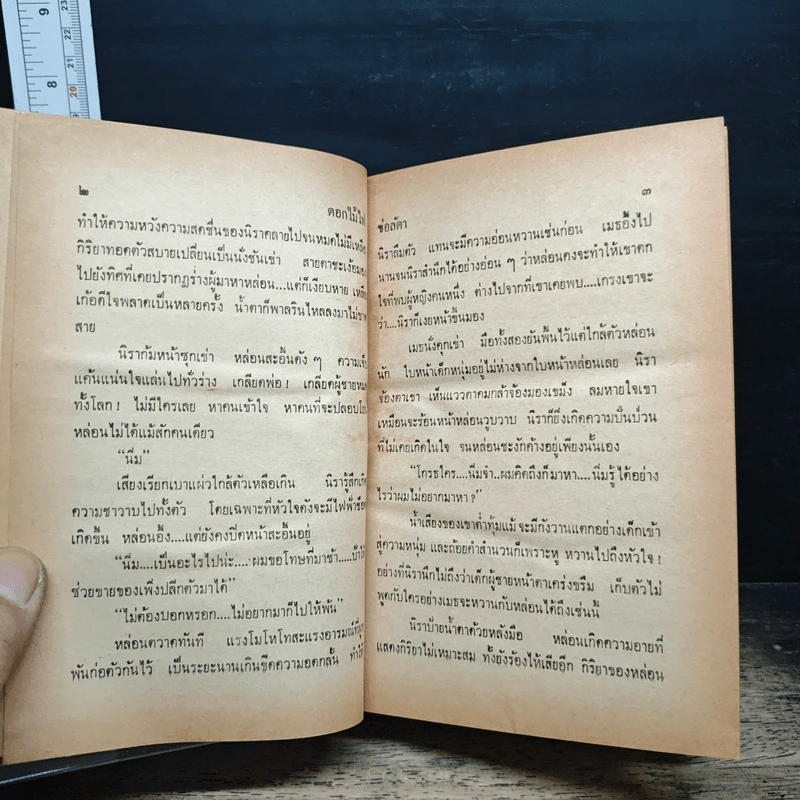 ๒
ดอกไม้ใ
ทำให้ความหวังความสดชื่นของนิราคลายไปจนหมดไม่มีเหลือ
กิริยาทอดตัวสบายเปลี่ยนเป็นนั่งชันเข่า สายตาชะเง้อมอง
ไปยังทิศที่เคยปรากฏร่างผู้มาหาหล่อน...แต่ก็เงียบหาย เหลือ
เก้อดีใจพลาดเป็นหลายครั้ง น้ำตาก็พาลรินไหลลงมาไม่ขาด
สาย
นิราก้มหน้าซุกเข่า หล่อนสะอื้นดัง ๆ ความเจ็บ
แค้นแน่นใจแล่นไปทั่วร่าง เกลียดพ่อ! เกลียดผู้ชายหมด
ทั้งโลก! ไม่มีใครเลย หาคนเข้าใจ หาคนที่จะปลอบโยน
หล่อนไม่ได้แม้สักคนเดียว
“นึ่ม”
เสียงเรียกเบาแผ่วใกล้ตัวเหลือเกิน นิรารู้สึกเกิด
ความซาวาบไปทั้งตัว โดยเฉพาะที่หัวใจดังจะมีไฟฟ้าช็อต
เกิดขึ้น หล่อนอึ้ง....แต่ยังคงปิดหน้าสะอื้นอยู่
“นึ่ม....เป็นอะไรไปน่ะ....ผมขอโทษที่มาช้า.....บ้าใช้
ช่วยขายของเพิ่งปลีกตัวมาได้”
“ไม่ต้องบอกหรอก....ไม่อยากมาก็ไปให้พ้น”
หล่อนตวาดทันที แรงโมโหโทสะแรงอารมณ์ที่ผูก
พันก่อตัวกันไว้ เป็นระยะนานเกินขีดความอดกลั้น ทำให้
๓
ช่อลัดา
นิราลืมตัว แทนจะมีความอ่อนหวานเช่นก่อน เมธอึ้งไป
นานจนนิราสำนึกได้อย่างอ่อน ๆ ว่าหล่อนคงจะทำให้เขาตก
ใจที่พบผู้หญิงคนหนึ่ง ต่างไปจากที่เขาเคยพบ....เกรงเขาจะ
ว่า....นิราก็เงยหน้าขึ้นมอง
เมธนั่งคุกเข่า มือทั้งสองยันพื้นไว้แต่ใกล้ตัวหล่อน
นัก ใบหน้าเด็กหนุ่มอยู่ไม่ห่างจากใบหน้าหล่อนเลย นิรา
จ้องตาเขา เห็นแววตาคมกล้าจ้องมองเขม็ง ลมหายใจเขา
เหมือนจะร้อนหน้าหล่อนวูบวาบ นิราก็ยิ่งเกิดความปั่นป่วน
ที่ไม่เคยเกิดในใจ จนหล่อนชะงักค้างอยู่เพียงนั้นเอง
“โกรธใคร....นึ่มจ๋า...ผมคิดถึงก็มาหา....นึ่มรู้ได้อย่าง
ไรว่าผมไม่อยากมาหา?”
น้ำเสียงของเขาต่ำทุ้มแม้จะมีกังวานแตกอย่างเด็กเข้า
สู่ความหนุ่ม และถ้อยคำสำนวนก็เพราะหู หวานไปถึงหัวใจ!
อย่างที่นิรานึกไม่ถึงว่าเด็กผู้ชายหน้าตาเคร่งขรึม เก็บตัวไม่
พูดกับใครอย่างเมธจะหวานกับหล่อนได้ถึงเช่นนี้
นิราป้ายน้ำตาด้วยหลังมือ หล่อนเกิดความอายที่
แสดงกิริยาไม่เหมาะสม ทั้งยังร้องไห้เสียอีก กิริยาของหล่อน
9
8
23
22
21
20